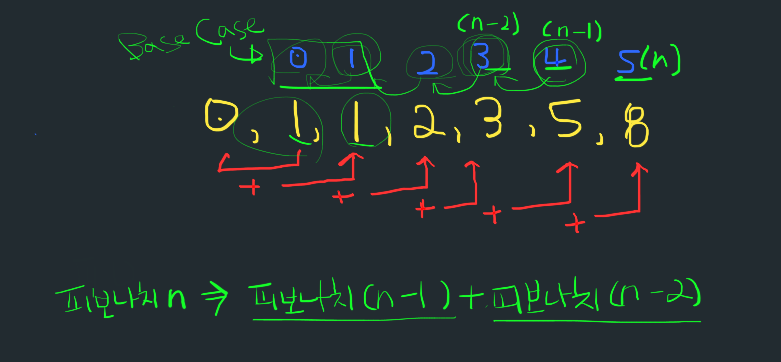 Base Case
(n-2) (n-1)
0 1 2 3 4 5(n)
0, 1, 1, 2, 3, 5, 8
+ + + + +
피보나치n ⇒ 피보나치(n-1)+피보나치(n-2)